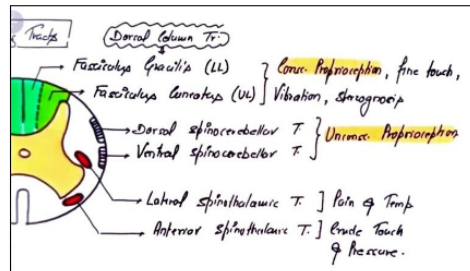 Tracts
Dorsal Column Tr.
Fasciculus Gracilis (LL)
Fasciculus Cuneatus (UL)
Consc. Proprioception, fine touch,
Vibration, stereognosis
Dorsal spinocerebellar T.
Ventral spinocerebellar T.
Unconsc. Proprioception
Lateral Spinothalamic T. ] Pain & Temp
Anterior Spinothalamic T. ] Crude Touch
& Pressure.